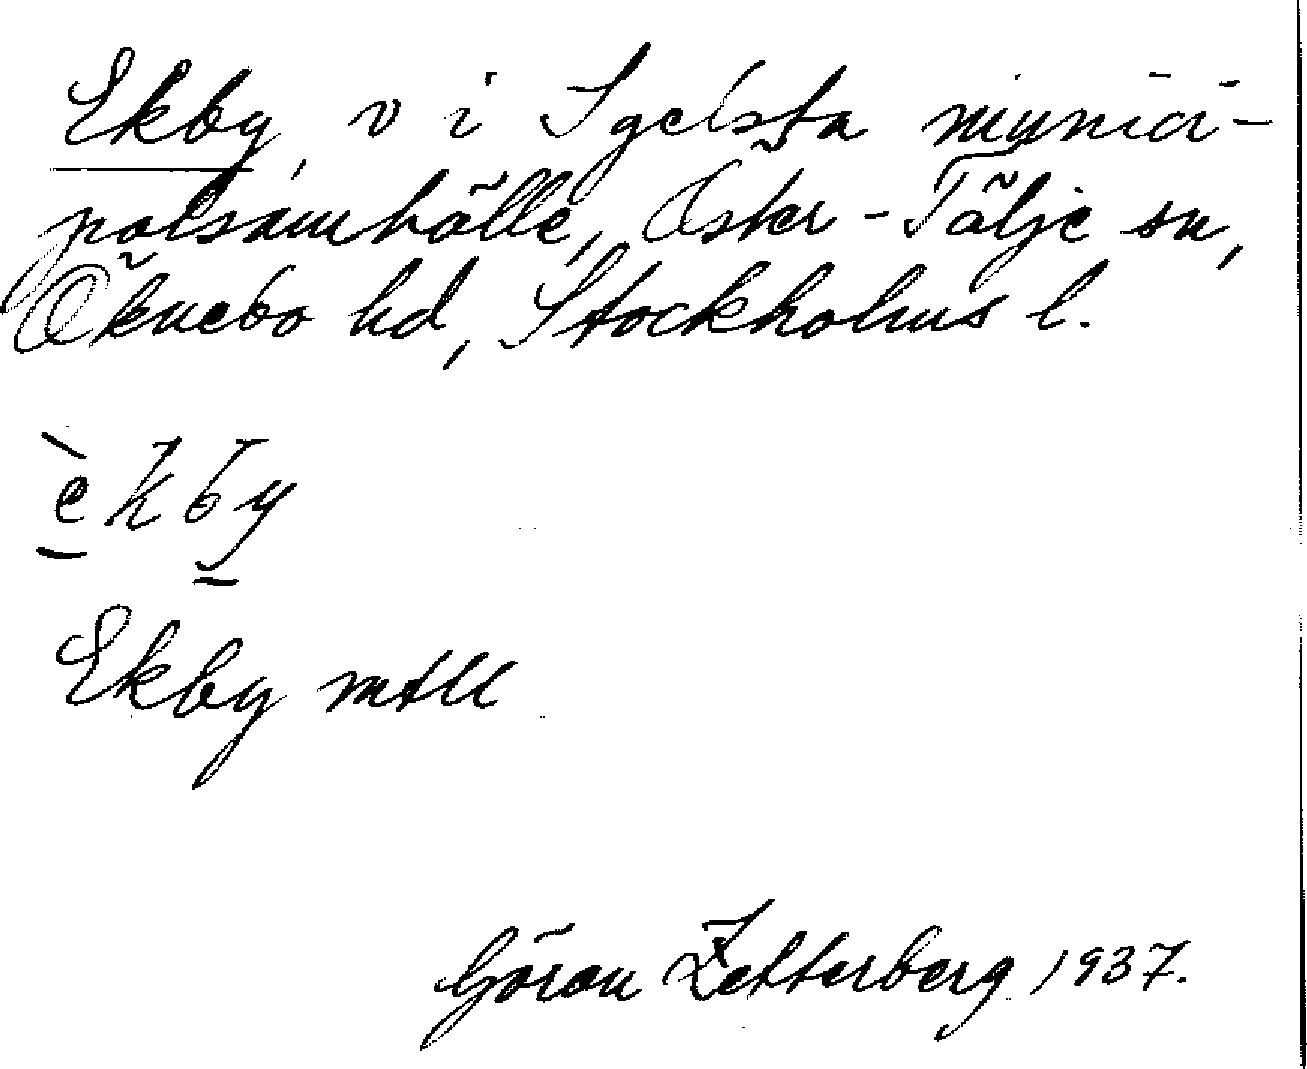 Ekby, v i Igelsta munici-
palsamhälle, Öster-Tälje sn,
Öknebo hd, Stockholms l.
èkby
Ekby mtll
Göran Zetterberg 1937.